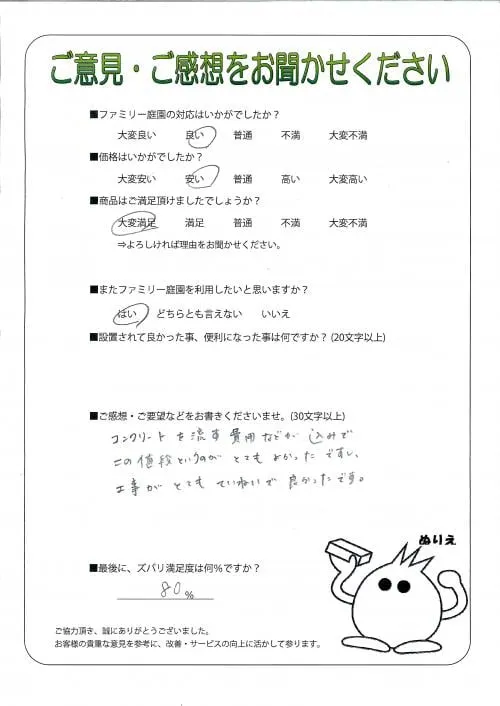 ご意見・ご感想をお聞かせください
■ファミリー庭園の対応はいかがでしたか？
大変良い 良い 普通 不満 大変不満
■価格はいかがでしたか？
大変安い 安い 普通 高い 大変高い
■商品はご満足頂けましたでしょうか？
大変満足 満足 普通 不満 大変不満
⇒よろしければ理由をお聞かせください。
■またファミリー庭園を利用したいと思いますか？
はい どちらとも言えない いいえ
■設置されて良かった事、便利になった事は何ですか？(20文字以上)
■ご感想・ご要望などをお書きくださいませ。(30文字以上)
コンクリートを流す費用などが込みで
この値段というのがとてもよかったですし、
工事がとてもていねいで良かったです。
ぬりえ
■最後に、ズバリ満足度は何％ですか？
80％
ご協力頂き、誠にありがとうございました。
お客様の貴重な意見を参考に、改善・サービスの向上に活かして参ります。